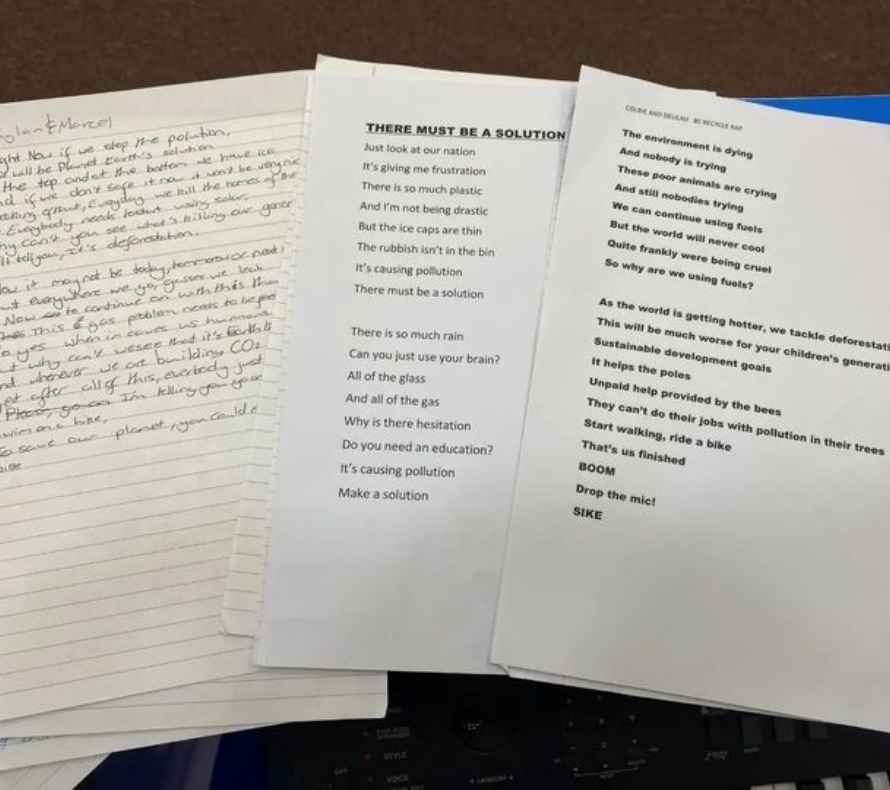 & Marcel
Now if we stop the polution,
will be Planet Earth's solution
the top and at the bottom we have ice
if we don't safe it now it won't be very nice
Everyday we kill the homes of the
Everybody needs to start using solar,
why can't you see what's killing our
tell you, it's deforestation.
it may not be today, tommorow or next
everywhere we go, gasses we leak
Now to continue on with this
This gas problem needs to be
yes when in caves us humans
why can't we see that it's Earth
whenever we are building CO2
after all of this, everybody just
I'm telling you
swim on a bike,
To save our planet, you could
THERE MUST BE A SOLUTION
Just look at our nation
It's giving me frustration
There is so much plastic
And I'm not being drastic
But the ice caps are thin
The rubbish isn't in the bin
It's causing pollution
There must be a solution
There is so much rain
Can you just use your brain?
All of the glass
And all of the gas
Why is there hesitation
Do you need an education?
It's causing pollution
Make a solution
COLBIE AND DELILAH 8C RECYCLE RAP
The environment is dying
And nobody is trying
These poor animals are crying
And still nobodies trying
We can continue using fuels
But the world will never cool
Quite frankly were being cruel
So why are we using fuels?
As the world is getting hotter, we tackle deforestati
This will be much worse for your children's generati
Sustainable development goals
It helps the poles
Unpaid help provided by the bees
They can't do their jobs with pollution in their trees
Start walking, ride a bike
That's us finished
BOOM
Drop the mic!
SIKE
STYLE
VOICE
CATEGORY